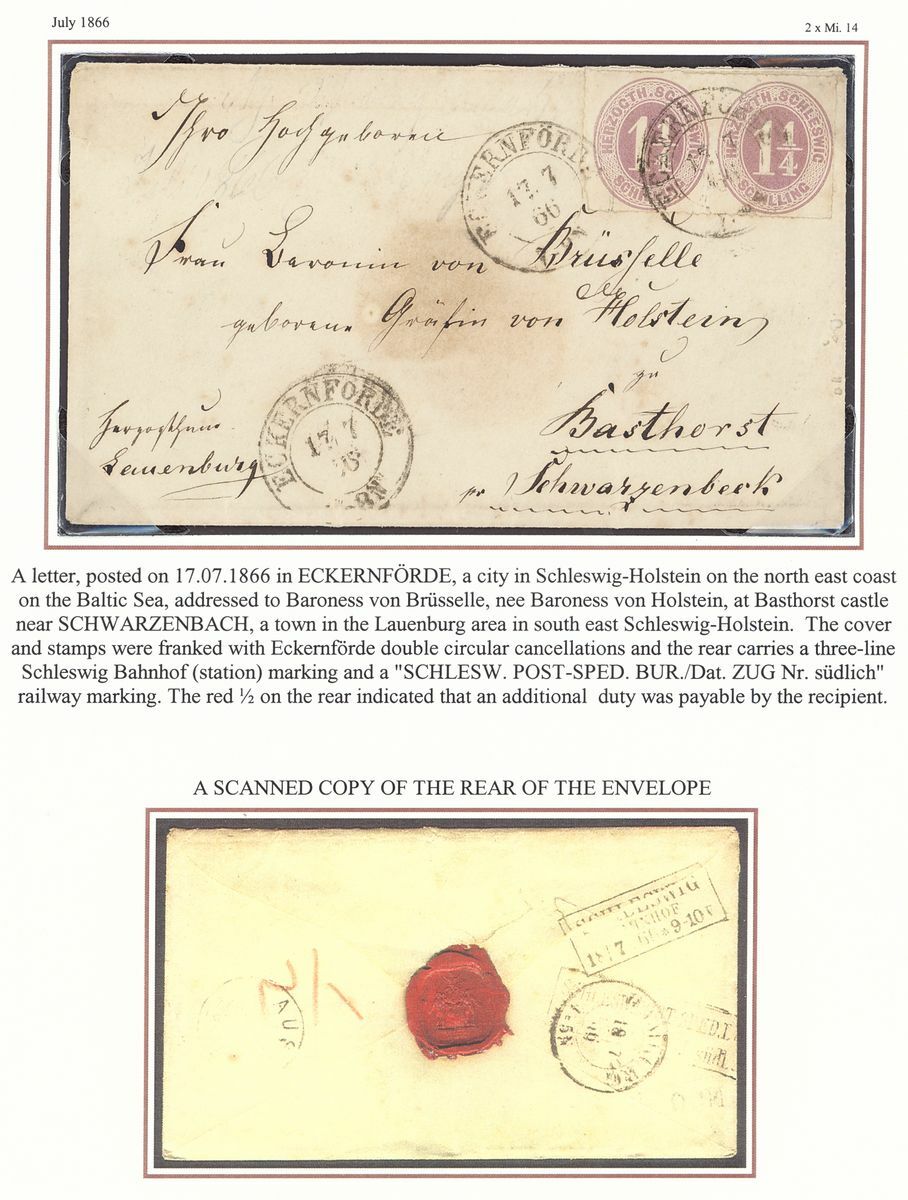 July 1866
2 x Mi. 14
HERZOGTH. SCHLESWIG
1¼
SCHILLING
HERZOGTH. SCHLESWIG
1¼
SCHILLING
Ihro Hochgeboren
ECKERNFÖRDE
17. 7
66
ECKERNFÖRDE
Frau Baronin von Brüsselle
geborene Gräfin von Holstein
zu
Basthorst
pr Schwarzenbeck
Herzogthum
Lauenburg
ECKERNFÖRDE
17. 7
66
A letter, posted on 17.07.1866 in ECKERNFÖRDE, a city in Schleswig-Holstein on the north east coast
on the Baltic Sea, addressed to Baroness von Brüsselle, nee Baroness von Holstein, at Basthorst castle
near SCHWARZENBACH, a town in the Lauenburg area in south east Schleswig-Holstein. The cover
and stamps were franked with Eckernförde double circular cancellations and the rear carries a three-line
Schleswig Bahnhof (station) marking and a "SCHLESW. POST-SPED. BUR./Dat. ZUG Nr. südlich"
railway marking. The red ½ on the rear indicated that an additional duty was payable by the recipient.
A SCANNED COPY OF THE REAR OF THE ENVELOPE
SCHLESWIG
BAHNHOF
18 7 66 9-10
AUS
18 7
66
südl.